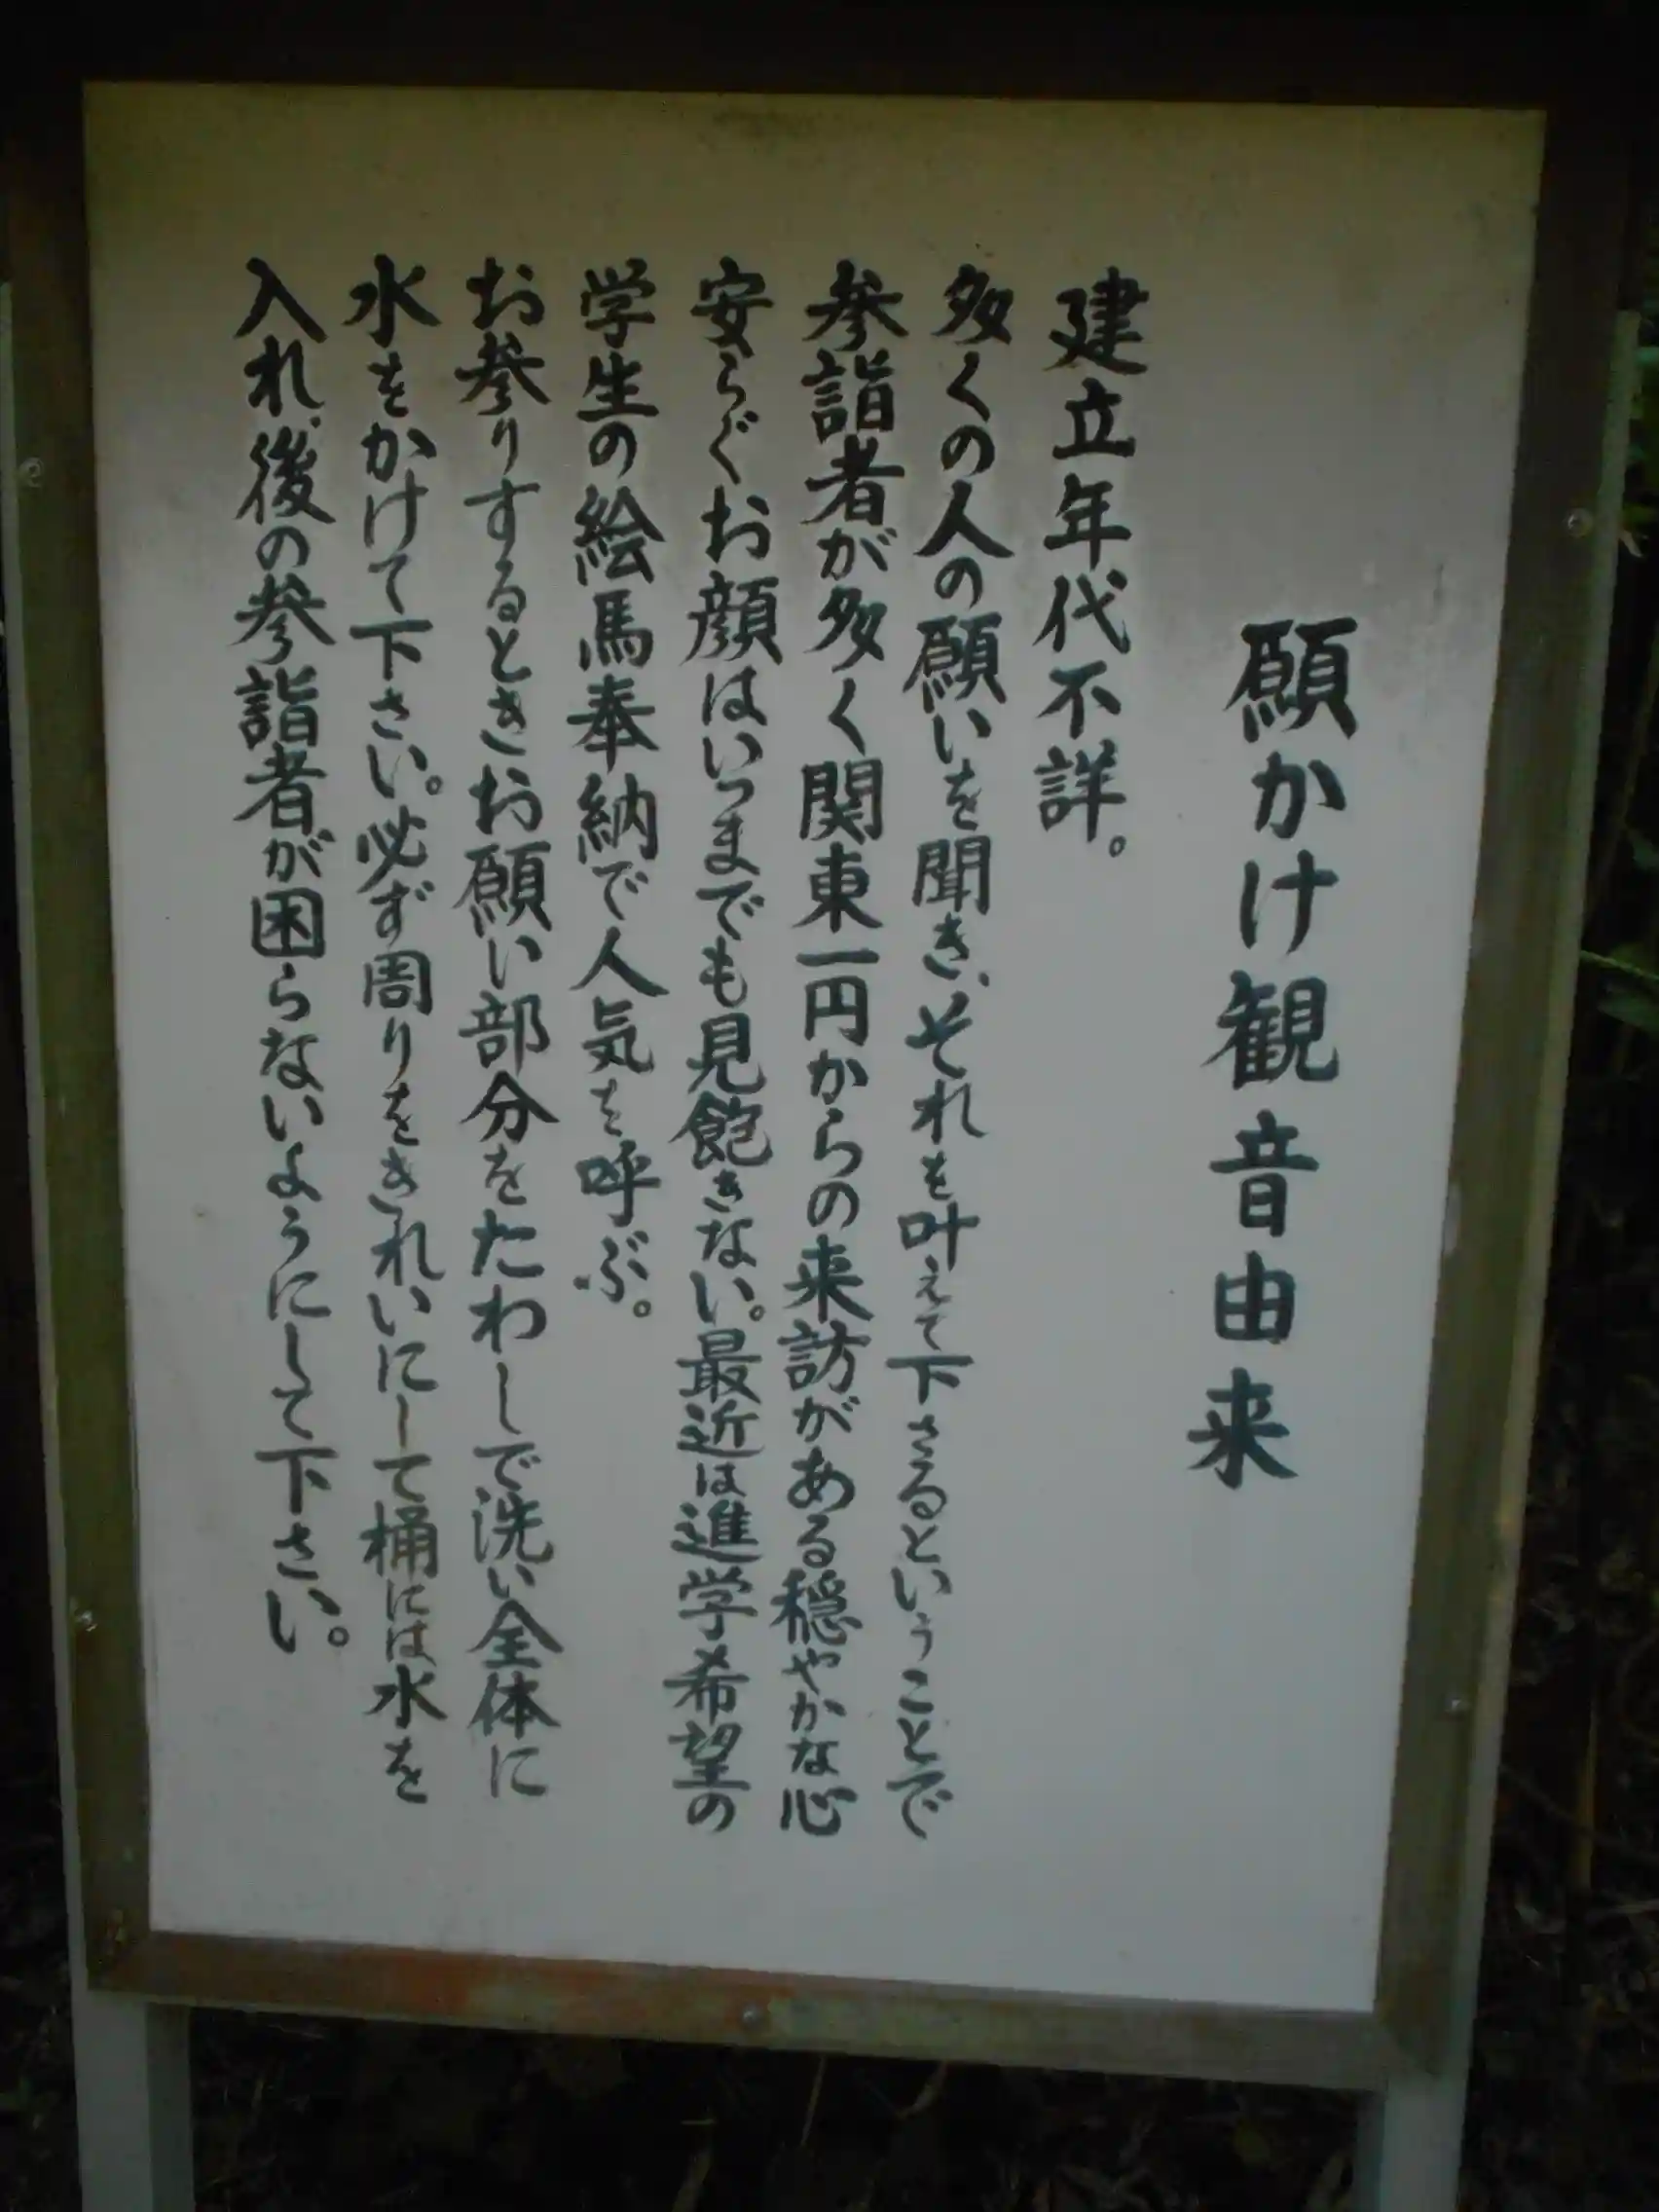 願かけ観音由来
建立年代不詳。
多くの人の願いを聞き、それを叶えて下さるということで
参詣者が多く関東一円からの来訪がある穏やかな心
安らぐお顔はいつまでも見飽きない。最近は進学希望の
学生の絵馬奉納で人気を呼ぶ。
お参りするときお願い部分をたわしで洗い全体に
水をかけて下さい。必ず周りをきれいにして桶には水を
入れ、後の参詣者が困らないようにして下さい。